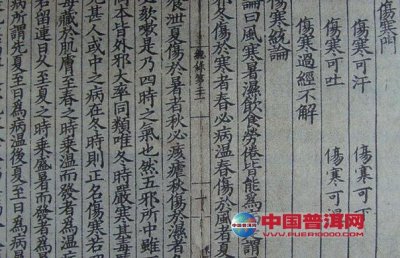 傷寒門
傷寒可汗 傷寒可下
傷寒可吐 傷寒可
傷寒過經不解
傷寒統論
論曰風寒暑濕飲食勞倦皆能為 謂
冬傷於寒者春必病溫春傷於風者夏
泄夏傷於暑者秋必痎瘧秋傷於
欬嗽是乃四時之氣也然五邪所中雖
本皆外邪大率同類唯冬時嚴寒其毒
甚人或中之病在冬時則正名傷寒若
毒藏於肌膚至春之時乗溫而發者為溫
若留連日久至夏之時乗盛暑而發者為
病所謂先夏至日為病溫後夏至日為病
中国普洱网
WWW.PUER10000.COM